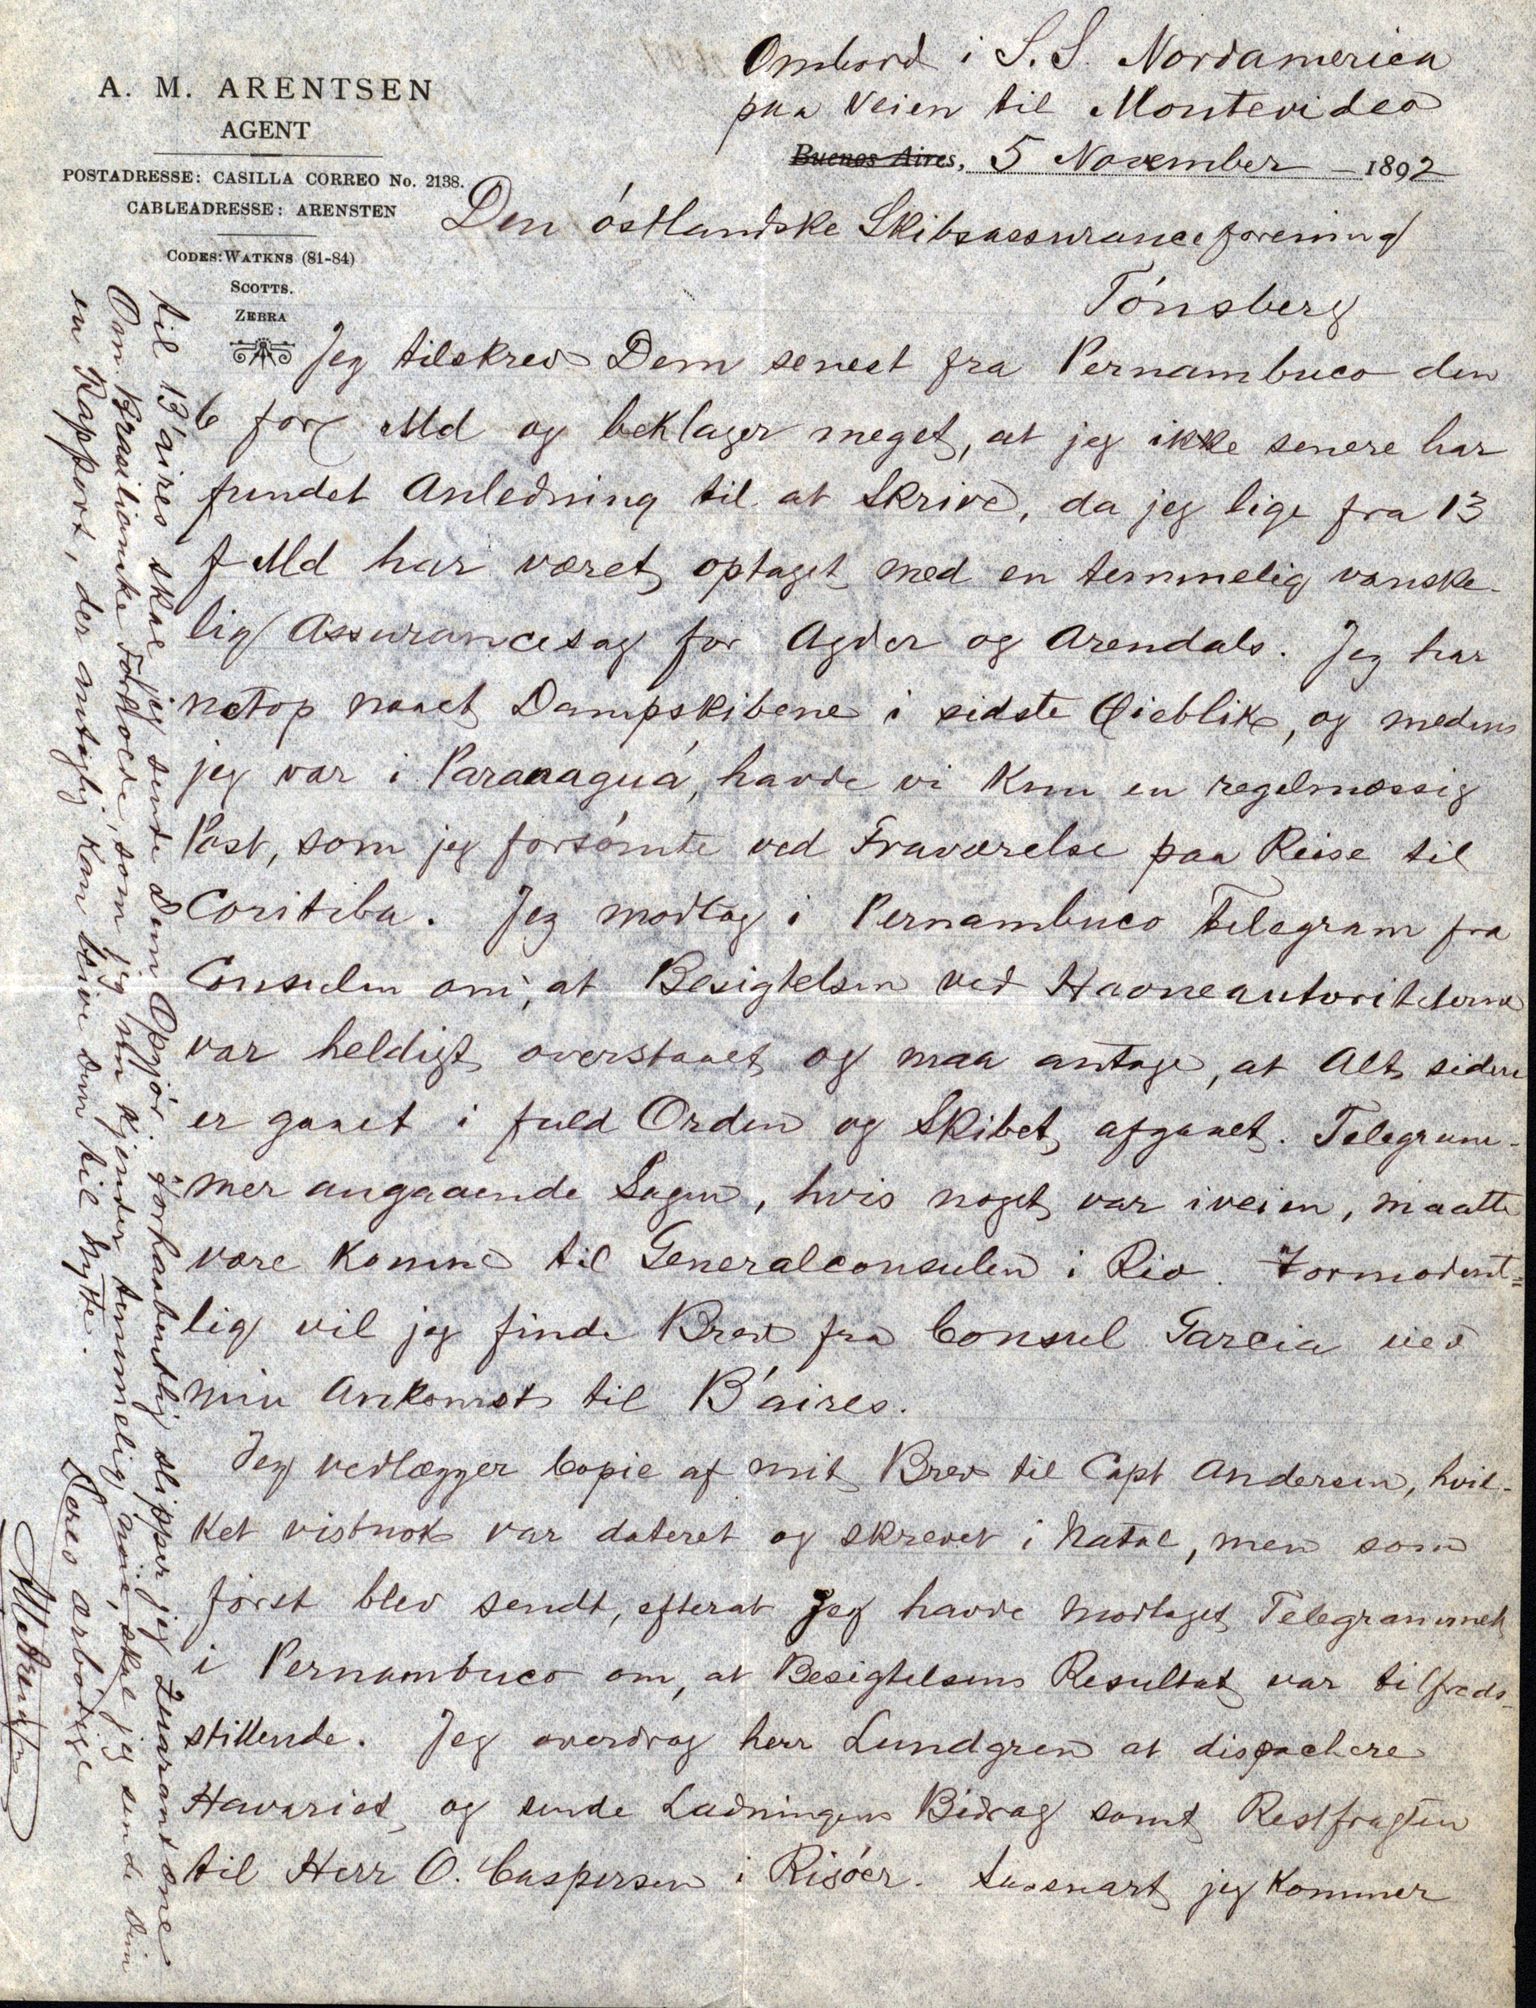 A. M. ARENTSEN
AGENT
POSTADRESSE: CASILLA CORREO No. 2138.
CABLEADRESSE: ARENSTEN
CODES: WATKNS (81-84)
SCOTTS.
ZEBRA
Ombord i S.S. Nordamerica
paa Veien til Montevideo
Buenos Aires, 5 November 1892
Den östlandske Skibsassuranceforening
Tönsberg
Jeg tilskrev Dem senest fra Pernambuco den
6 for Md og beklager meget, at jeg ikke senere har
fundet Anledning til at skrive, da jeg lige fra 13
f Md har været optaget med en temmelig vanske-
lig Assurancesag for Agder og Arendals. Jeg har
netop naaet Dampskibene i sidste Øieblik, og medens
jeg var i Paranaguá, havde vi kun en regelmæssig
Post, som jeg forsömte ved Fraværelse paa Reise til
Coritiba. Jeg modtog i Pernambuco Telegram fra
Consulen om, at Besigtelsen ved Havneautoriteterne
var heldigt overstaaet og maa antage, at Alt siden
er gaaet i fuld Orden og Skibet afgaaet. Telegram-
mer angaaende Sagen, hvis noget var iveien, maatte
være komne til Generalconsulen i Rio. Formodent=
lig vil jeg finde Brev fra Consul Garcia ved
min Ankomst til B'aires.
Jeg vedlægger Copie af mit Brev til Capt Andersen, hvil-
ket vistnok var dateret og skrevet i Natal, men som
först blev sendt, efterat jeg havde modtaget Telegrammet
i Pernambuco om, at Besigtelsens Resultat var tilfreds-
stillende. Jeg overdrog herr Lundgren at dispachere
Havariet, og sende Ladningens Bidrag samt Restfragten
til Herr O. Caspersen i Risöer. Saasnart jeg kommer
til B'aires skal jeg sende Dem Opgjör. forhaabentlig slipper jeg Quarantæne
Om Brasilianske Forholde, som jeg nu kjender temmelig nöie, skal jeg sende Dem
en Rapport, der mulig kan blive Dem til Nytte.
Deres ærbödige
AM Arentsen